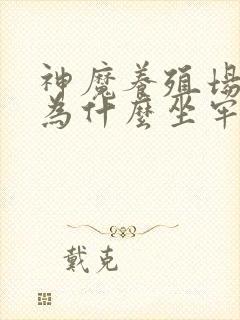 神魔養殖場
為什麼坐牢
戴克